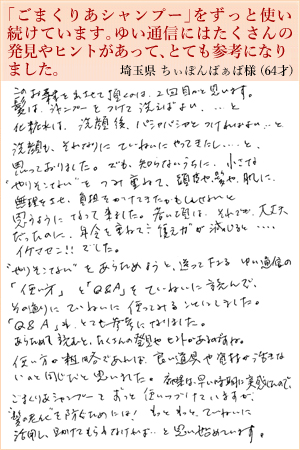 「ごまくりあシャンプー」をずっと使い
続けています。ゆい通信にはたくさんの
発見やヒントがあって、とても参考になり
ました。
埼玉県 ちぃぽんばぁば様（64才）
このお手紙を出させて頂くのは、2回目かと思います。
髪は、シャンプーをつけて洗えばよい…と
化粧水は、洗顔後、パシャパシャとつければよい…と
洗顔も、それなりにていねいにやってきたし…、と
思っておりました。でも、知らないうちに、小さな
"やりそこない"をつみ重ねて、頭皮や髪や、肌に、
無理をさせ、負担をかけてきたかもしれないと
思うようになって来ました。若い頃は、それでも、大丈夫
だったのに、年令を重ねて"復元力"が減少すると…、
イケマセン!!でした。
"やりそこない"をあらためようと、送って下さる ゆい通信の
「使い方」と「Q&A」をていねいに読んで、
その通りに ていねいに 使ってみることにしました。
「Q&A」も、とても参考になりました。
あらためて読むと、たくさんの発見やヒントがあるのですね。
使い方が粗略であれば、良い道具や資材が活きな
いのと同じだと思いました。
ごまくりあシャンプーをずっと使いつづけていますが、
を防ぐためには! もっともっと、ていねいに
活用し、助けてもらわなければ…と思い始めています。